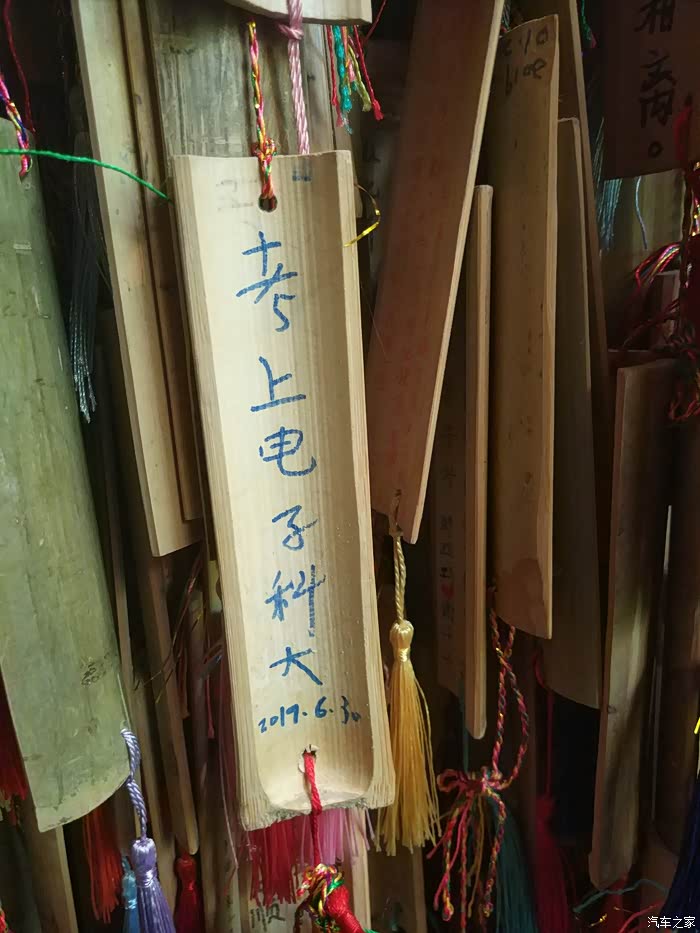 考上电子科大
2019.6.30
汽车之家